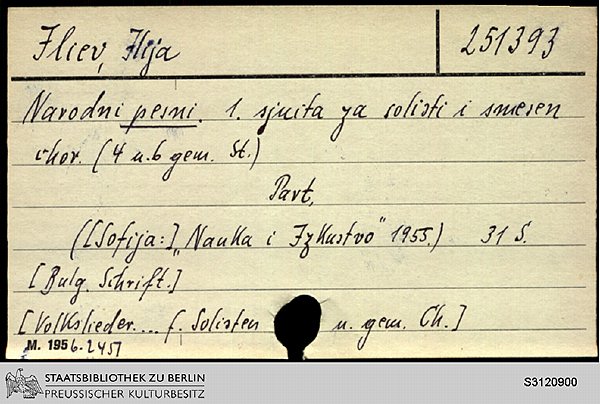 Iliev, Ilija 251393
Narodni pesni. 1. sjuita za solisti i smesen
chor. (4 u. 6 gem. St.)
Part.
([Sofija:] „Nauka i Izkustvo" 1955.) 31 S.
[Bulg. Schrift.]
[Volkslieder.... f. Solisten u. gem. Ch.]
M. 1956.2451
STAATSBIBLIOTHEK ZU BERLIN
PREUSSISCHER KULTURBESITZ
S3120900